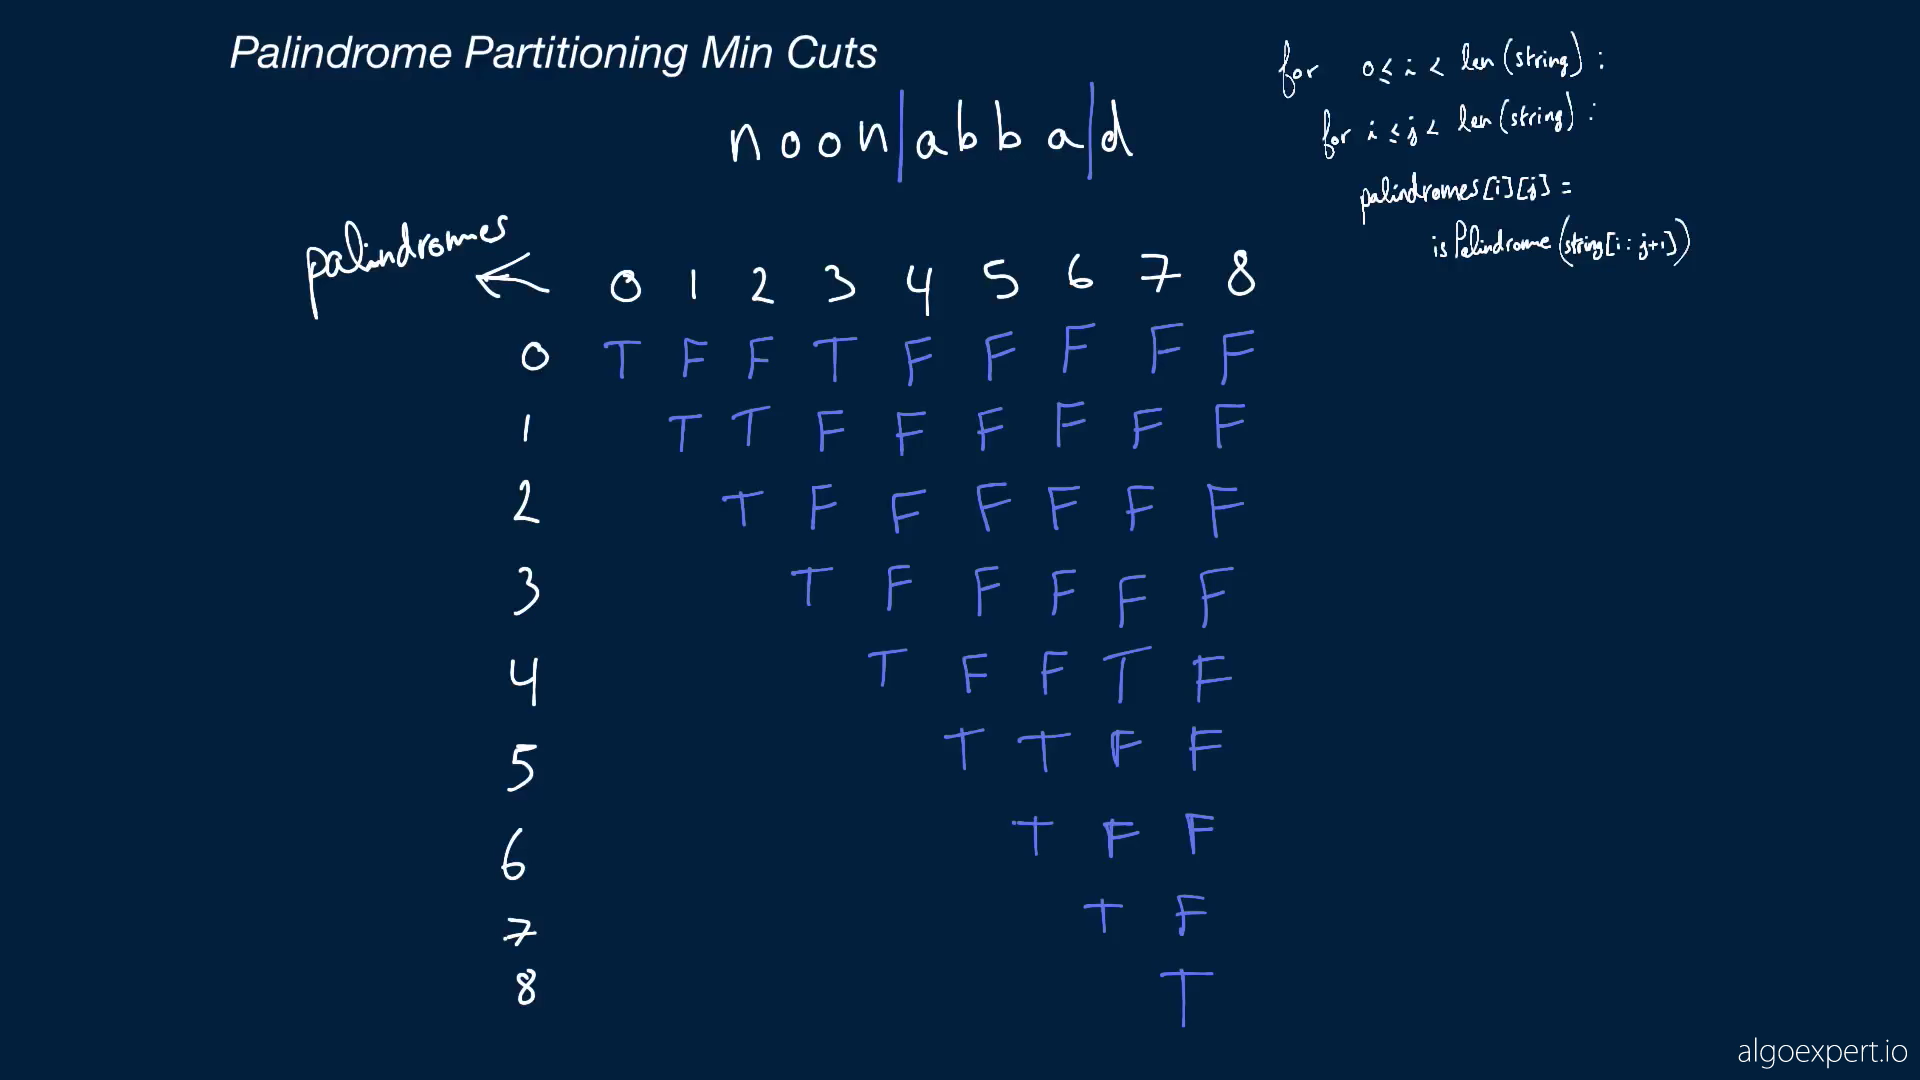 Palindrome Partitioning Min Cuts
noon|abba|d
for 0 ≤ i < len(string):
for i ≤ j < len(string):
palindromes[i][j] =
isPalindrome(string[i:j+1])
palindromes
0 1 2 3 4 5 6 7 8
0 T F F T F F F F F
1 T T F F F F F F F
2 T F F F F F F
3 T F F F F F
4 T F F T F
5 T T F F
6 T F F
7 T F
8 T
algoexpert.io